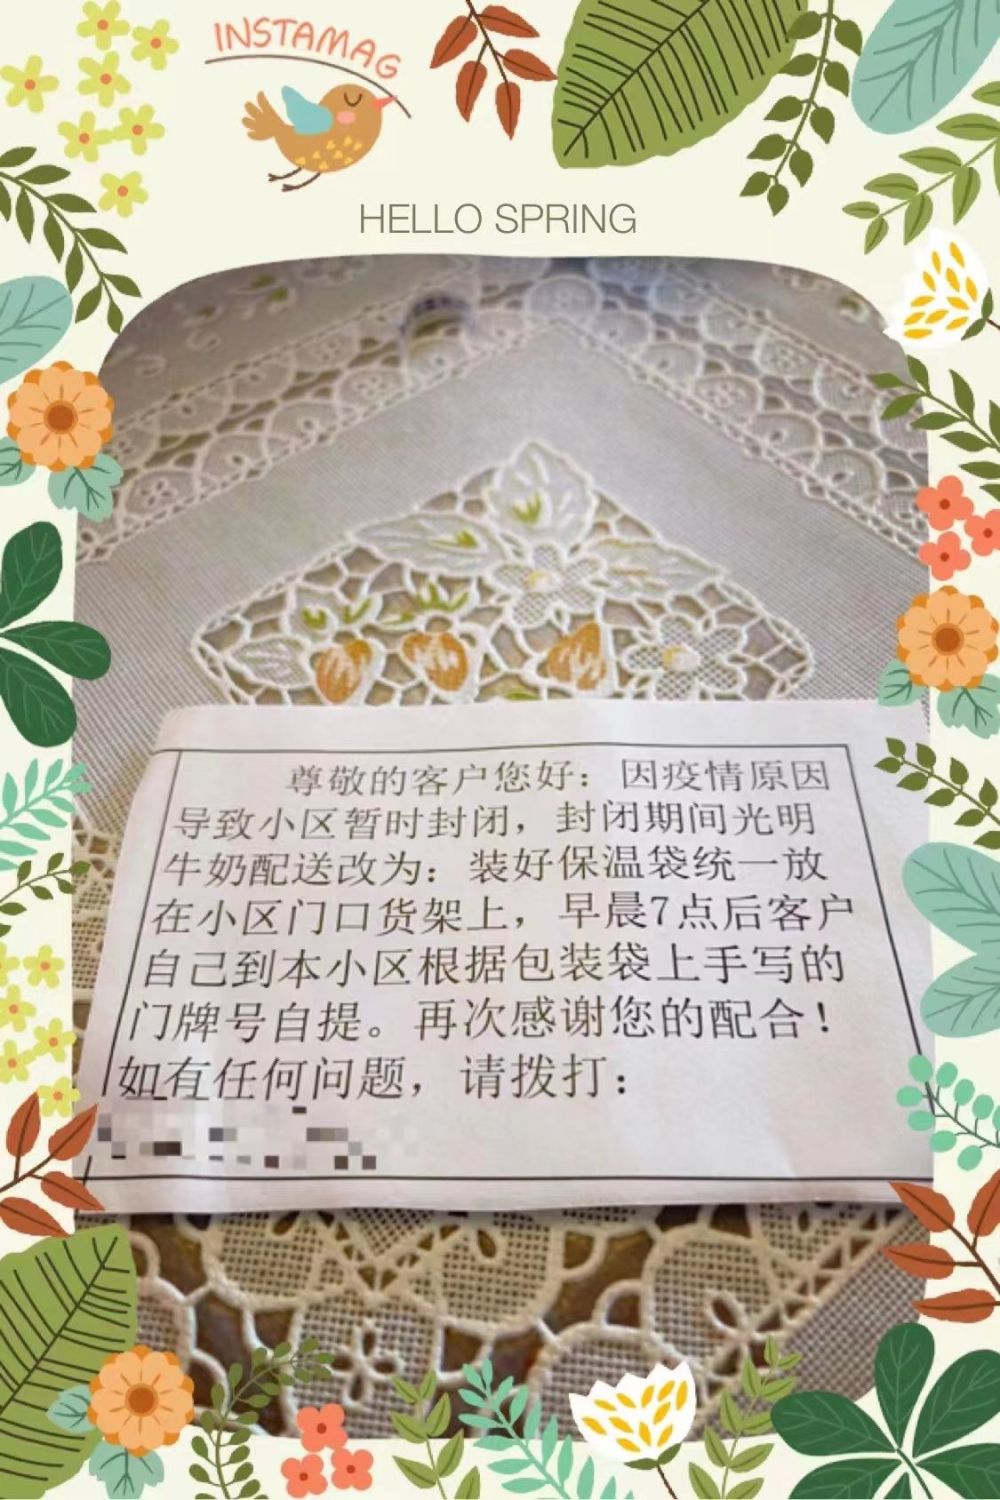 INSTAMAG
HELLO SPRING
尊敬的客户您好：因疫情原因
导致小区暂时封闭，封闭期间光明
牛奶配送改为：装好保温袋统一放
在小区门口货架上，早晨7点后客户
自己到本小区根据包装袋上手写的
门牌号自提。再次感谢您的配合！
如有任何问题，请拨打：